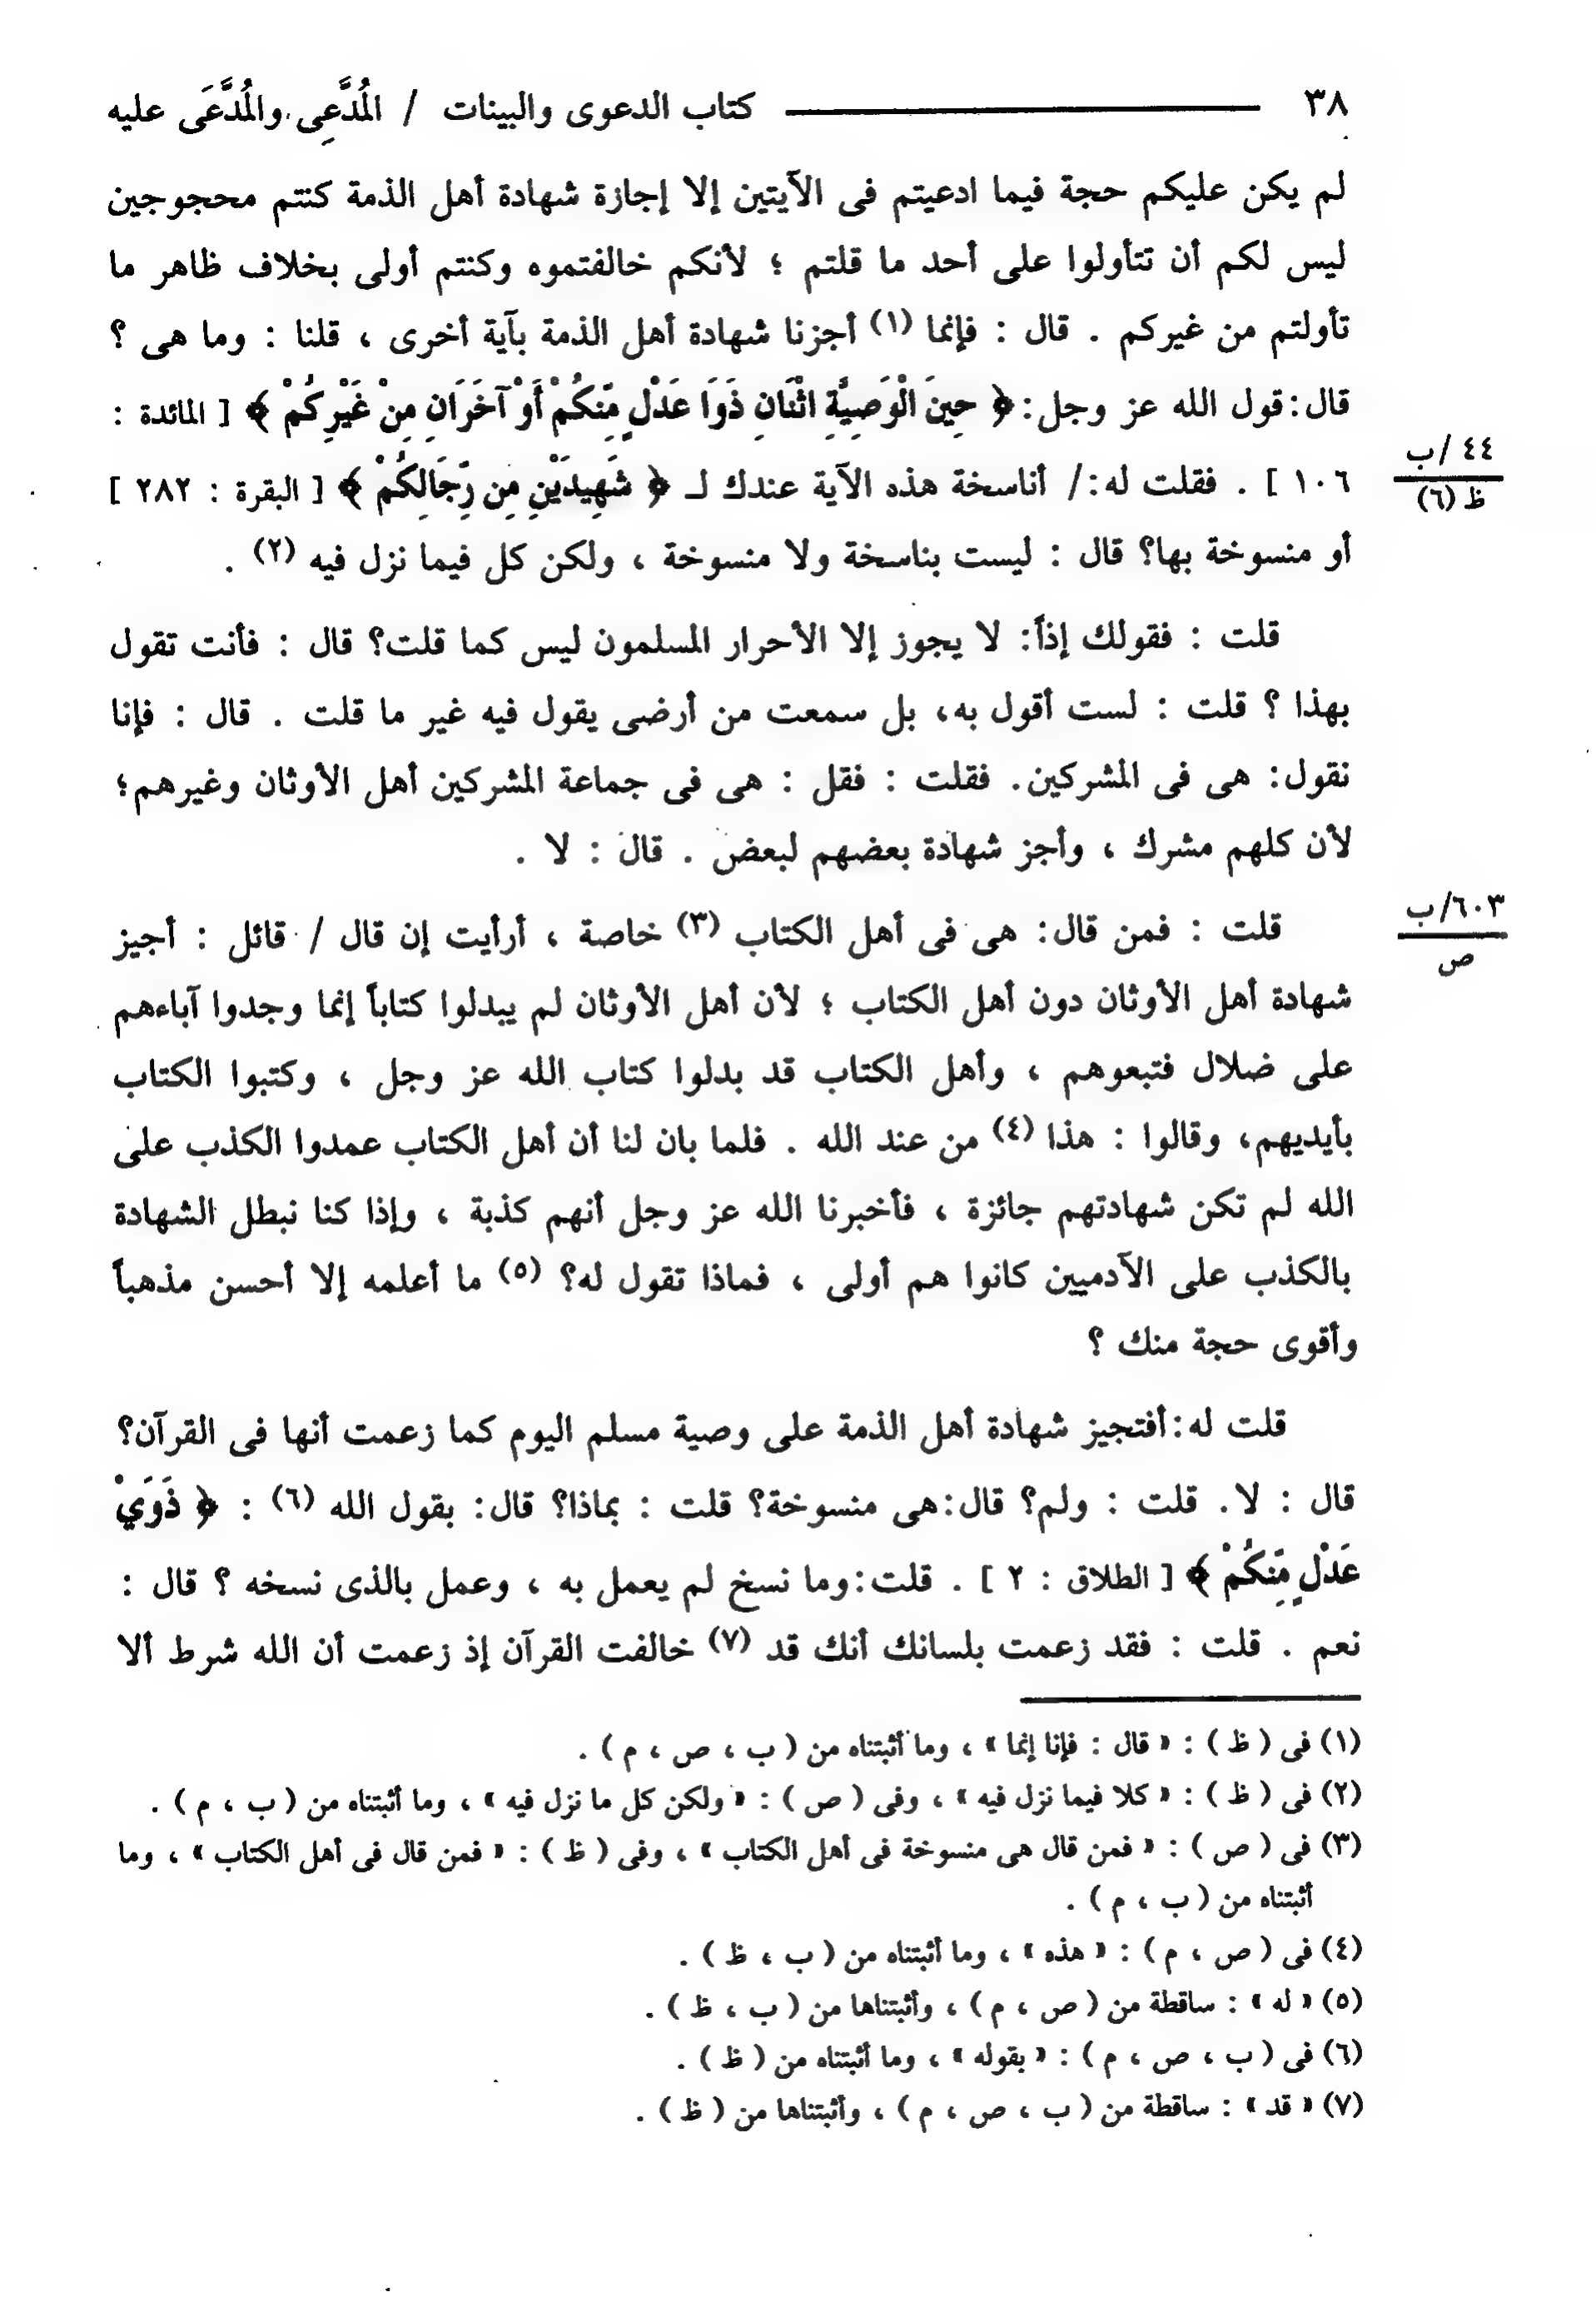 ٣٨ ــــــــــــــــ كتاب الدعوى والبينات / المُدَّعِى والمُدَّعَى عليه
لم يكن عليكم حجة فيما ادعيتم فى الآيتين إلا إجازة شهادة أهل الذمة كنتم محجوجين
ليس لكم أن تتأولوا على أحد ما قلتم ؛ لأنكم خالفتموه وكنتم أولى بخلاف ظاهر ما
تأولتم من غيركم . قال : فإنما (١) أجزنا شهادة أهل الذمة بآية أخرى ، قلنا : وما هى ؟
قال:قول الله عز وجل:﴿ حِينَ الْوَصِيَّةِ اثْنَانِ ذَوَا عَدْلٍ مِّنكُمْ أَوْ آخَرَانِ مِنْ غَيْرِكُمْ ﴾ [ المائدة :
١٠٦ ] . فقلت له:/ أناسخة هذه الآية عندك لـ ﴿ شَهِيدَيْنِ مِن رِّجَالِكُمْ ﴾ [ البقرة : ٢٨٢ ]
٤٤ /ب
ظ (٦)
أو منسوخة بها؟ قال : ليست بناسخة ولا منسوخة ، ولكن كل فيما نزل فيه (٢) .
قلت : فقولك إذاً: لا يجوز إلا الأحرار المسلمون ليس كما قلت؟ قال : فأنت تقول
بهذا ؟ قلت : لست أقول به، بل سمعت من أرضى يقول فيه غير ما قلت . قال : فإنا
نقول: هى فى المشركين. فقلت : فقل : هى فى جماعة المشركين أهل الأوثان وغيرهم؛
لأن كلهم مشرك ، وأجز شهادة بعضهم لبعض . قال : لا .
قلت : فمن قال: هى فى أهل الكتاب (٣) خاصة ، أرأيت إن قال / قائل : أجيز
٦٠٣/ب
ص
شهادة أهل الأوثان دون أهل الكتاب ؛ لأن أهل الأوثان لم يبدلوا كتاباً إنما وجدوا آباءهم
على ضلال فتبعوهم ، وأهل الكتاب قد بدلوا كتاب الله عز وجل ، وكتبوا الكتاب
بأيديهم، وقالوا : هذا (٤) من عند الله . فلما بان لنا أن أهل الكتاب عمدوا الكذب على
الله لم تكن شهادتهم جائزة ، فأخبرنا الله عز وجل أنهم كذبة ، وإذا كنا نبطل الشهادة
بالكذب على الآدميين كانوا هم أولى ، فماذا تقول له؟ (٥) ما أعلمه إلا أحسن مذهباً
وأقوى حجة منك ؟
قلت له:أفتجيز شهادة أهل الذمة على وصية مسلم اليوم كما زعمت أنها فى القرآن؟
قال : لا. قلت : ولم؟ قال:هى منسوخة؟ قلت : بماذا؟ قال: بقول الله (٦) : ﴿ ذَوَيْ
عَدْلٍ مِّنكُمْ ﴾ [ الطلاق : ٢ ] . قلت:وما نسخ لم يعمل به ، وعمل بالذى نسخه ؟ قال :
نعم . قلت : فقد زعمت بلسانك أنك قد (٧) خالفت القرآن إذ زعمت أن الله شرط ألا
(١) فى ( ظ ) : « قال : فإنا إنما » ، وما أثبتناه من ( ب ، ص ، م ) .
(٢) فى ( ظ ) : « كلا فيما نزل فيه » ، وفى ( ص ) : « ولكن كل ما نزل فيه » ، وما أثبتناه من ( ب ، م ) .
(٣) فى ( ص ) : « فمن قال هى منسوخة فى أهل الكتاب » ، وفى ( ظ ) : « فمن قال فى أهل الكتاب » ، وما
أثبتناه من ( ب ، م ) .
(٤) فى ( ص ، م ) : « هذه » ، وما أثبتناه من ( ب ، ظ ) .
(٥) « له » : ساقطة من ( ص ، م ) ، وأثبتناها من ( ب ، ظ ) .
(٦) فى ( ب ، ص ، م ) : « بقوله » ، وما أثبتناه من ( ظ ) .
(٧) « قد » : ساقطة من ( ب ، ص ، م ) ، وأثبتناها من ( ظ ) .